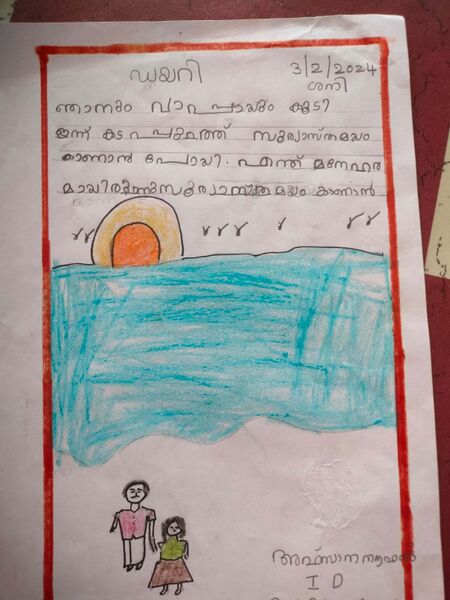 ഡയറി 3/2/2024
ശനി
ഞാനും വാപ്പായും കൂടി
ഇന്ന് കടപ്പുറത്ത് സൂര്യാസ്തമയം
കാണാൻ പോയി. എന്ത് മനോഹര
മായിരുന്നു സൂര്യാസ്തമയം കാണാൻ
അഫ്സാന
I D